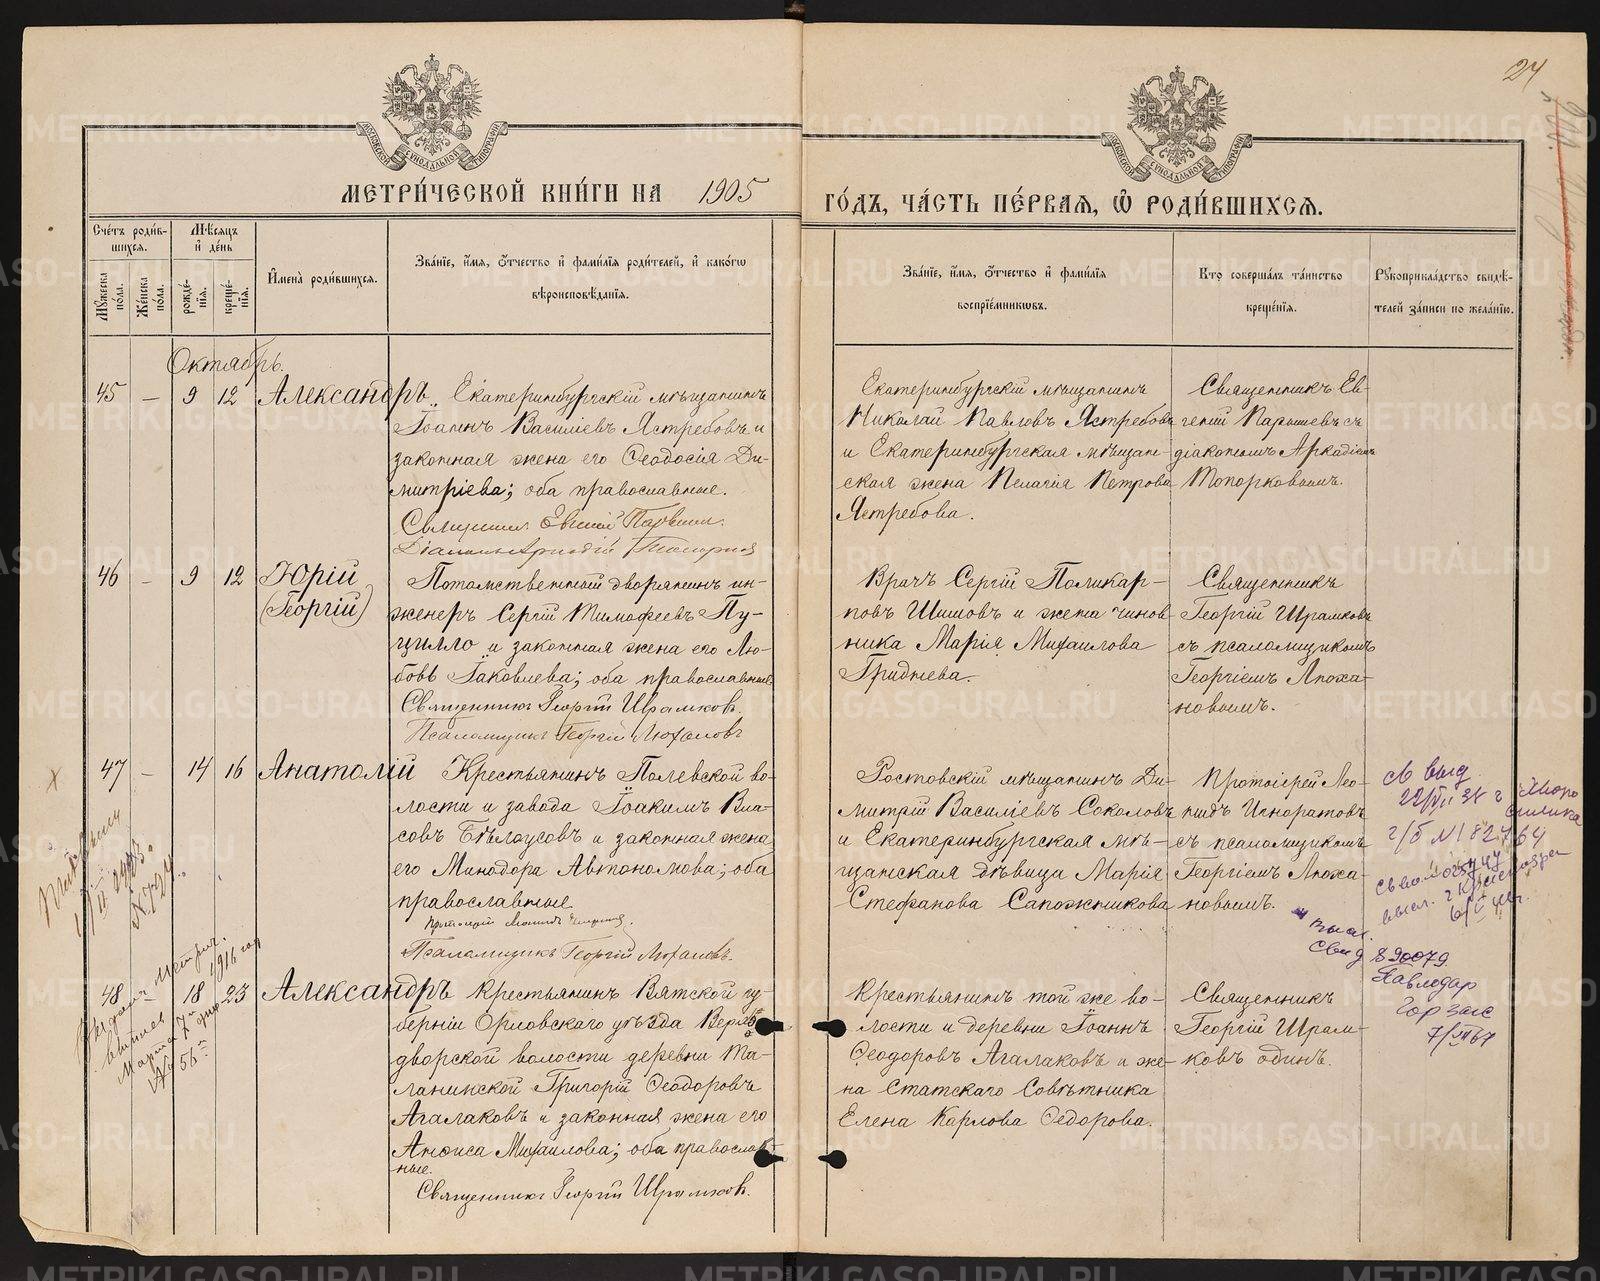 24
МОСКОВСКОЙ СѴНОДАЛЬНОЙ ТИПОГРАФІИ
МОСКОВСКОЙ СѴНОДАЛЬНОЙ ТИПОГРАФІИ
МЕТРИ́ЧЕСКОЙ КНИ́ГИ НА 1905
ГО́ДЪ, ЧА́СТЬ ПЕ́РВАЯ, Ѡ҆ РОДИ́ВШИХСѦ.
Сче́тъ роди́в-
шихсѧ.
Мꙋ́жеска по́ла.
Же́нска по́ла.
Мѣ́сѧцъ и҆ де́нь
рожде́-
нїѧ.
креще́-
нїѧ.
И҆мена̀ роди́вшихсѧ.
Зва́нїе, и҆́мѧ, ѻ҆́тчество и҆ фами́лїѧ роди́телей, и҆ како́гѡ
вѣроисповѣ́данїѧ.
Зва́нїе, и҆́мѧ, ѻ҆́тчество и҆ фами́лїѧ
воспрїе́мникѡвъ.
Кто̀ соверша́лъ та́инство
креще́нїѧ.
Рꙋкоприкла́дство свидѣ́-
телей за́писи по жела́нїю.
Октябрь.
45 — 9 12 Александръ.
Екатеринбургскій мѣщанинъ
Іоаннъ Василіевъ Ястребовъ и
законная жена его Ѳеодосія Ди-
митріева; оба православные.
Священникъ Евгеній
Діаконъ Аркадій Топорковъ
Екатеринбургскій мѣщанинъ
Николай Павловъ Ястребовъ
и Екатеринбургская мѣщан-
ская жена Пелагія Петрова
Ястребова.
Священникъ Ев-
геній Парышевъ съ
діакономъ Аркадіемъ
Топорковымъ.
46 — 9 12 Юрій
(Георгій)
Потомственный дворянинъ ин-
женеръ Сергій Тимофеевъ Пу-
цилло и законная жена его Лю-
бовь Іаковлева; оба православные.
Священникъ Георгій Шрамковъ.
Псаломщикъ Георгій Лохановъ
Врачъ Сергій Поликар-
повъ Шишовъ и жена чинов-
ника Марія Михаилова
Гриднева.
Священникъ
Георгій Шрамковъ
съ псаломщикомъ
Георгіемъ Лоха-
новымъ.
47 — 14 16 Анатолій
Крестьянинъ Полевской во-
лости и завода Іоакимъ Вла-
совъ Бѣлоусовъ и законная жена
его Минодора Автономова; оба
православные
Псаломщикъ Георгій Лохановъ.
Ростовскій мѣщанинъ Ди-
митрій Василіевъ Соколовъ
и Екатеринбургская мѣ-
щанская дѣвица Марія
Стефанова Сапожникова
Протоіерей Лео-
нидъ Игноратовъ
съ псаломщикомъ
Георгіемъ Лоха-
новымъ.
св выд
г/б № 182764
выс.
Свид 890079
Павлодар
Гор загс
7/VII 67
48 — 18 23 Александръ
Крестьянинъ Вятской гу-
берніи Орловскаго уѣзда Верхо-
дворской волости деревни Ма-
ланинской Григорій Ѳеодоровъ
Агалаковъ и законная жена его
Анѳиса Михаилова; оба православ-
ные.
Священникъ Георгій Шрамковъ.
Крестьянинъ той же во-
лости и деревни Іоаннъ
Ѳеодоровъ Агалаковъ и же-
на Статскаго Совѣтника
Елена Карлова Ѳедорова.
Священникъ
Георгій Шрам-
ковъ одинъ.
METRIKI.GASO-URAL.RU